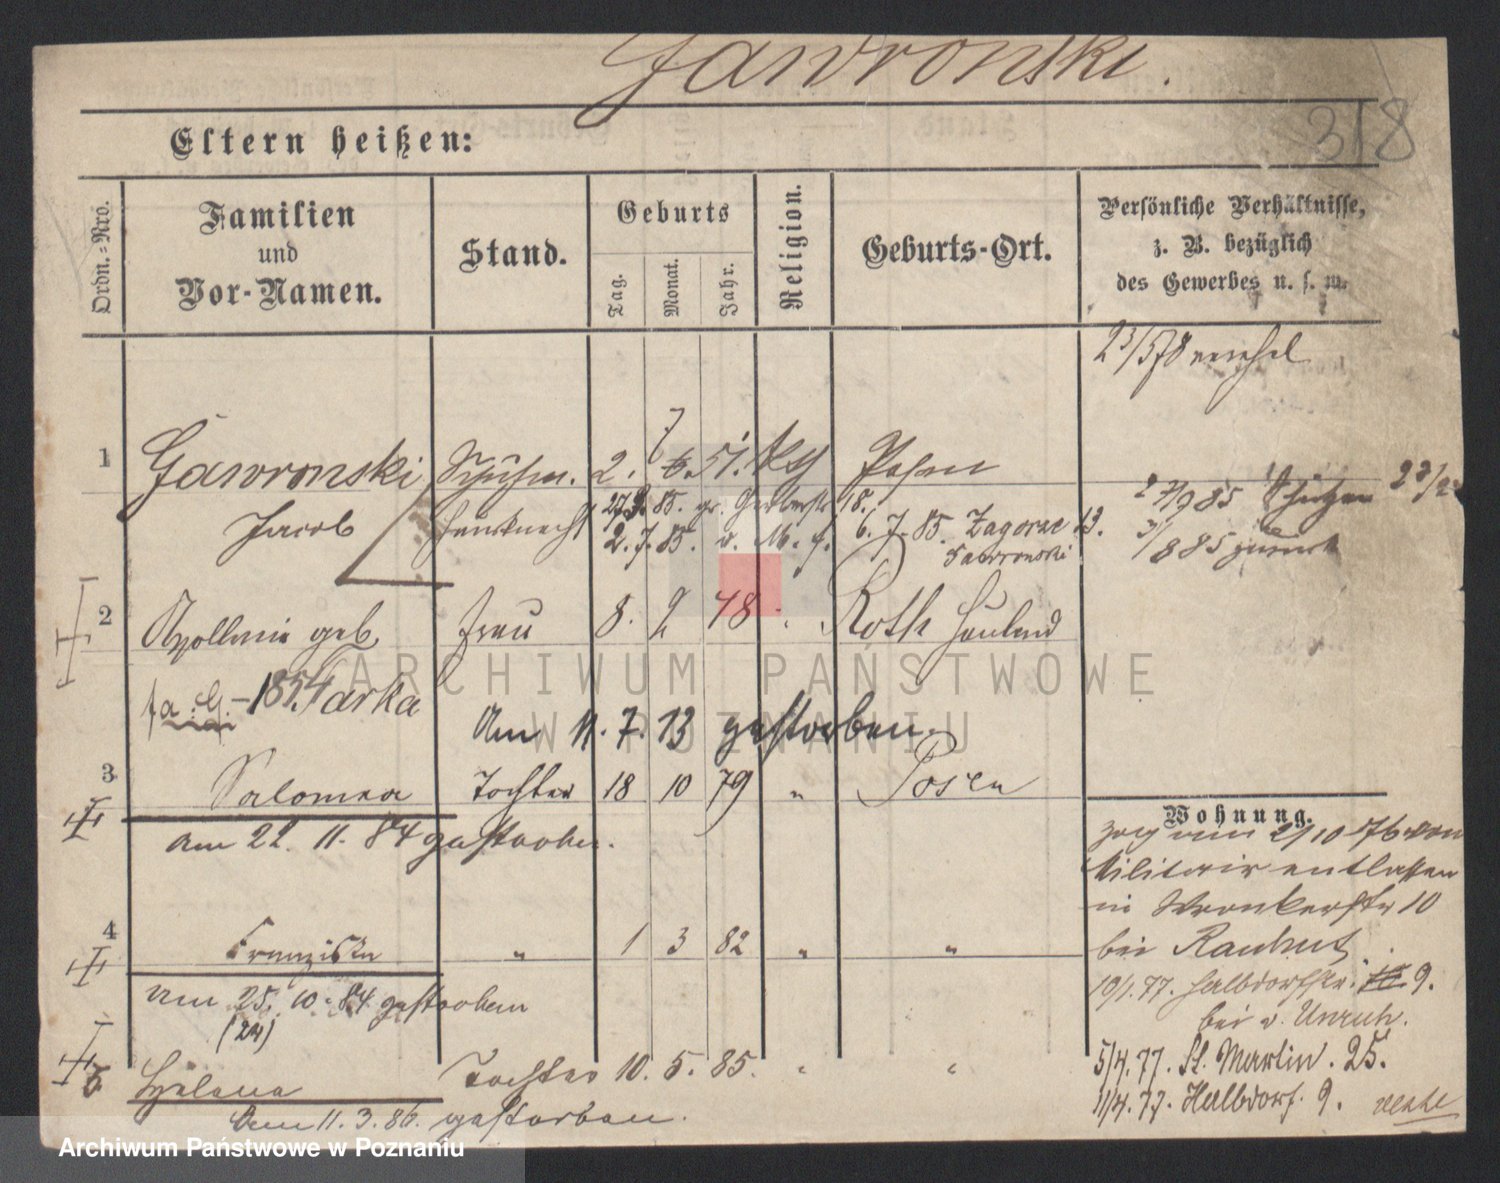 Gawronski.
318
Eltern heißen:
Ordn.-Nro.
Familien
und
Vor-Namen.
Stand.
Geburts
Tag.
Monat.
Jahr.
Religion.
Geburts-Ort.
Persönliche Verhältnisse,
z. B. bezüglich
des Gewerbes u. s. w.
23/5 78
1 Gawronski 2. 7 51. Posen
Jacob
27.9.85. gr. Gerberstr 18.
2.7.85. v. M. f. 6.7.85. Zagorze 13.
Gawronski
27/9 85
3/8 85 zurück
2 Apollonia geb. Frau 8. 2 48 Roth Hauland
1854 Tarka
Am 11. 7. 13 gestorben.
3 Salomea Tochter 18 10 79 " Posen
am 22. 11. 84 gestorben.
4 Franziska " 1 3 82 " "
am 25. 10. 84 gestorben
(24)
5 Helena Tochter 10. 5. 85. " "
Am 11. 3. 86. gestorben.
Wohnung.
zog am 2/10 76 vom
Militair entlassen
in Wronkerstr 10
bei Rauhut
10/1.77. Halbdorfstr. 9.
bei v. Unruh.
5/4.77. St. Martin. 25.
11/4.77. Halbdorf. 9.
ARCHIWUM PAŃSTWOWE
W POZNANIU
Archiwum Państwowe w Poznaniu